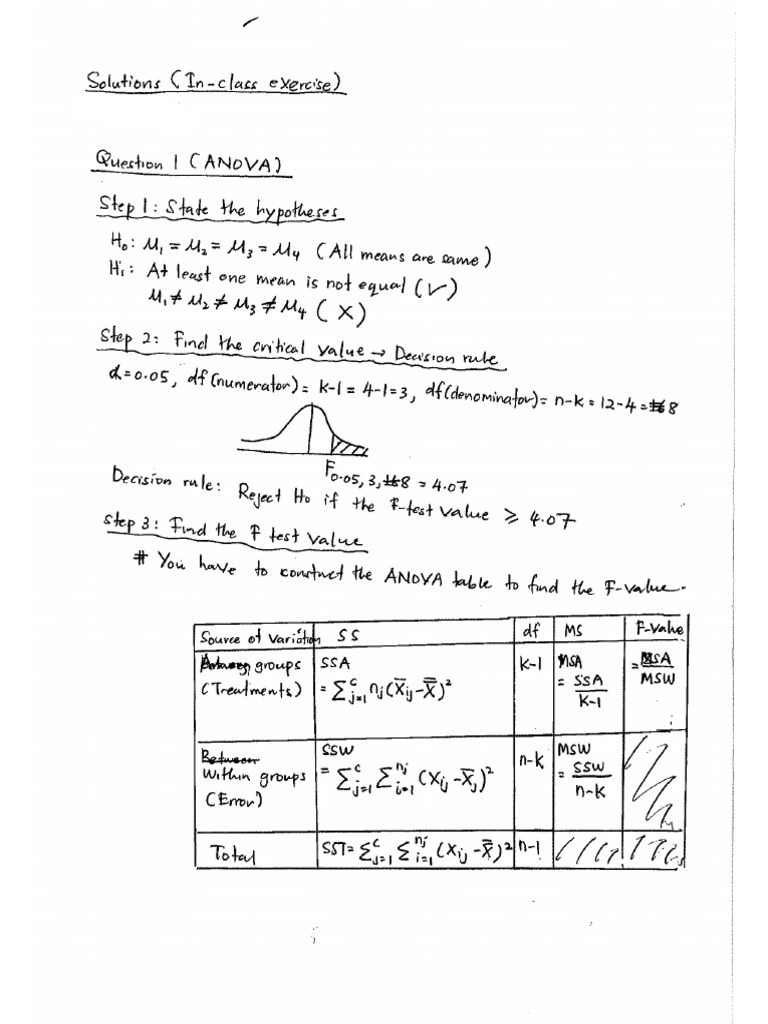 Solutions (In-class exercise)
Question 1 (ANOVA)
Step 1: State the hypotheses
H₀: μ₁ = μ₂ = μ₃ = μ₄ (All means are same)
H₁: At least one mean is not equal (✓)
μ₁ ≠ μ₂ ≠ μ₃ ≠ μ₄ (X)
Step 2: Find the critical value → Decision rule
α = 0.05, df(numerator) = k-1 = 4-1 = 3, df(denominator) = n-k = 12-4 = 8
F₀.₀₅,₃,₈ = 4.07
Decision rule: Reject Ho if the F-test value ≥ 4.07
Step 3: Find the F test value
# You have to construct the ANOVA table to find the F-value.
Source of variation SS df MS F-value
groups SSA k-1 MSA = MSA
(Treatments) = Σ_{j=1}^{c} n_j (X̄_j - X̿)² = SSA / k-1 MSW
Between SSW n-k MSW
Within groups = Σ_{j=1}^{c} Σ_{i=1}^{n_j} (X_ij - X̄_j)² = SSW / n-k
(Error)
Total SST = Σ_{j=1}^{c} Σ_{i=1}^{n_j} (X_ij - X̿)² n-1